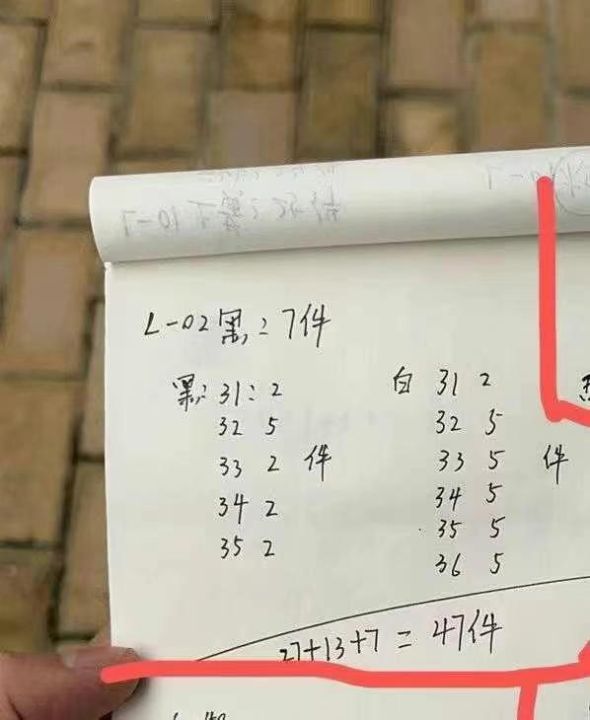 L-02黑：7件
黑：31：2
32 5
33 2 件
34 2
35 2
白 31 2
32 5
33 5 件
34 5
35 5
36 5
27+13+7 = 47件